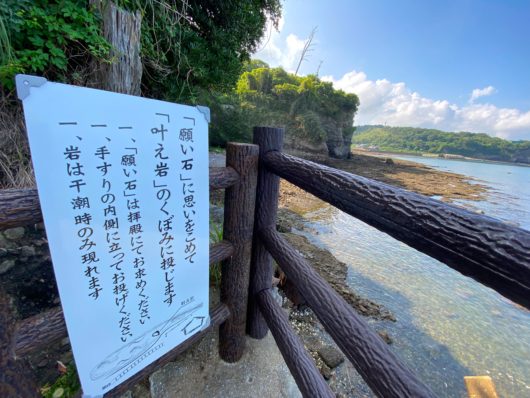 「願い石」に思いをこめて
「叶え岩」のくぼみに投じます
一、「願い石」は拝殿にてお求めください
一、手すりの内側に立ってお投げください
一、岩は干潮時のみ現れます